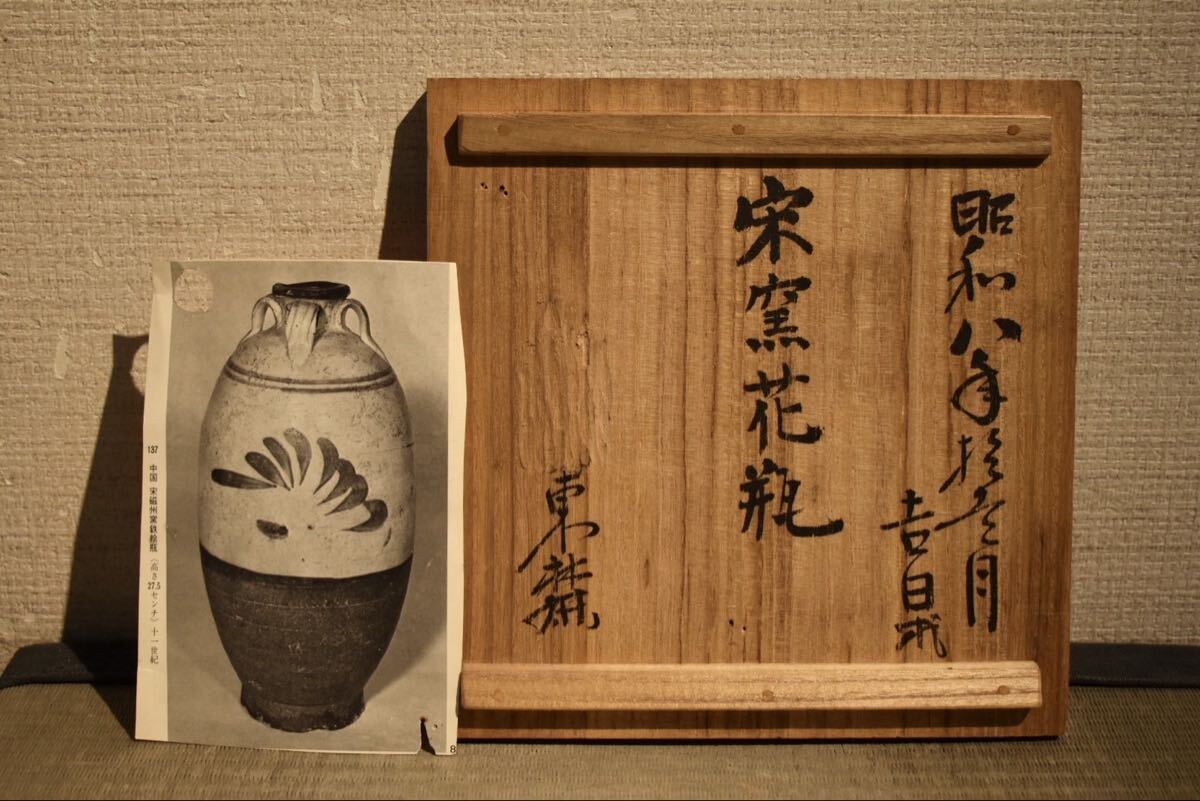 昭和八年拾弐月
吉日求
宋窯花瓶
東麓
137 中国 宋磁州窯鉄絵瓶（高さ27.5センチ）十一世紀
8